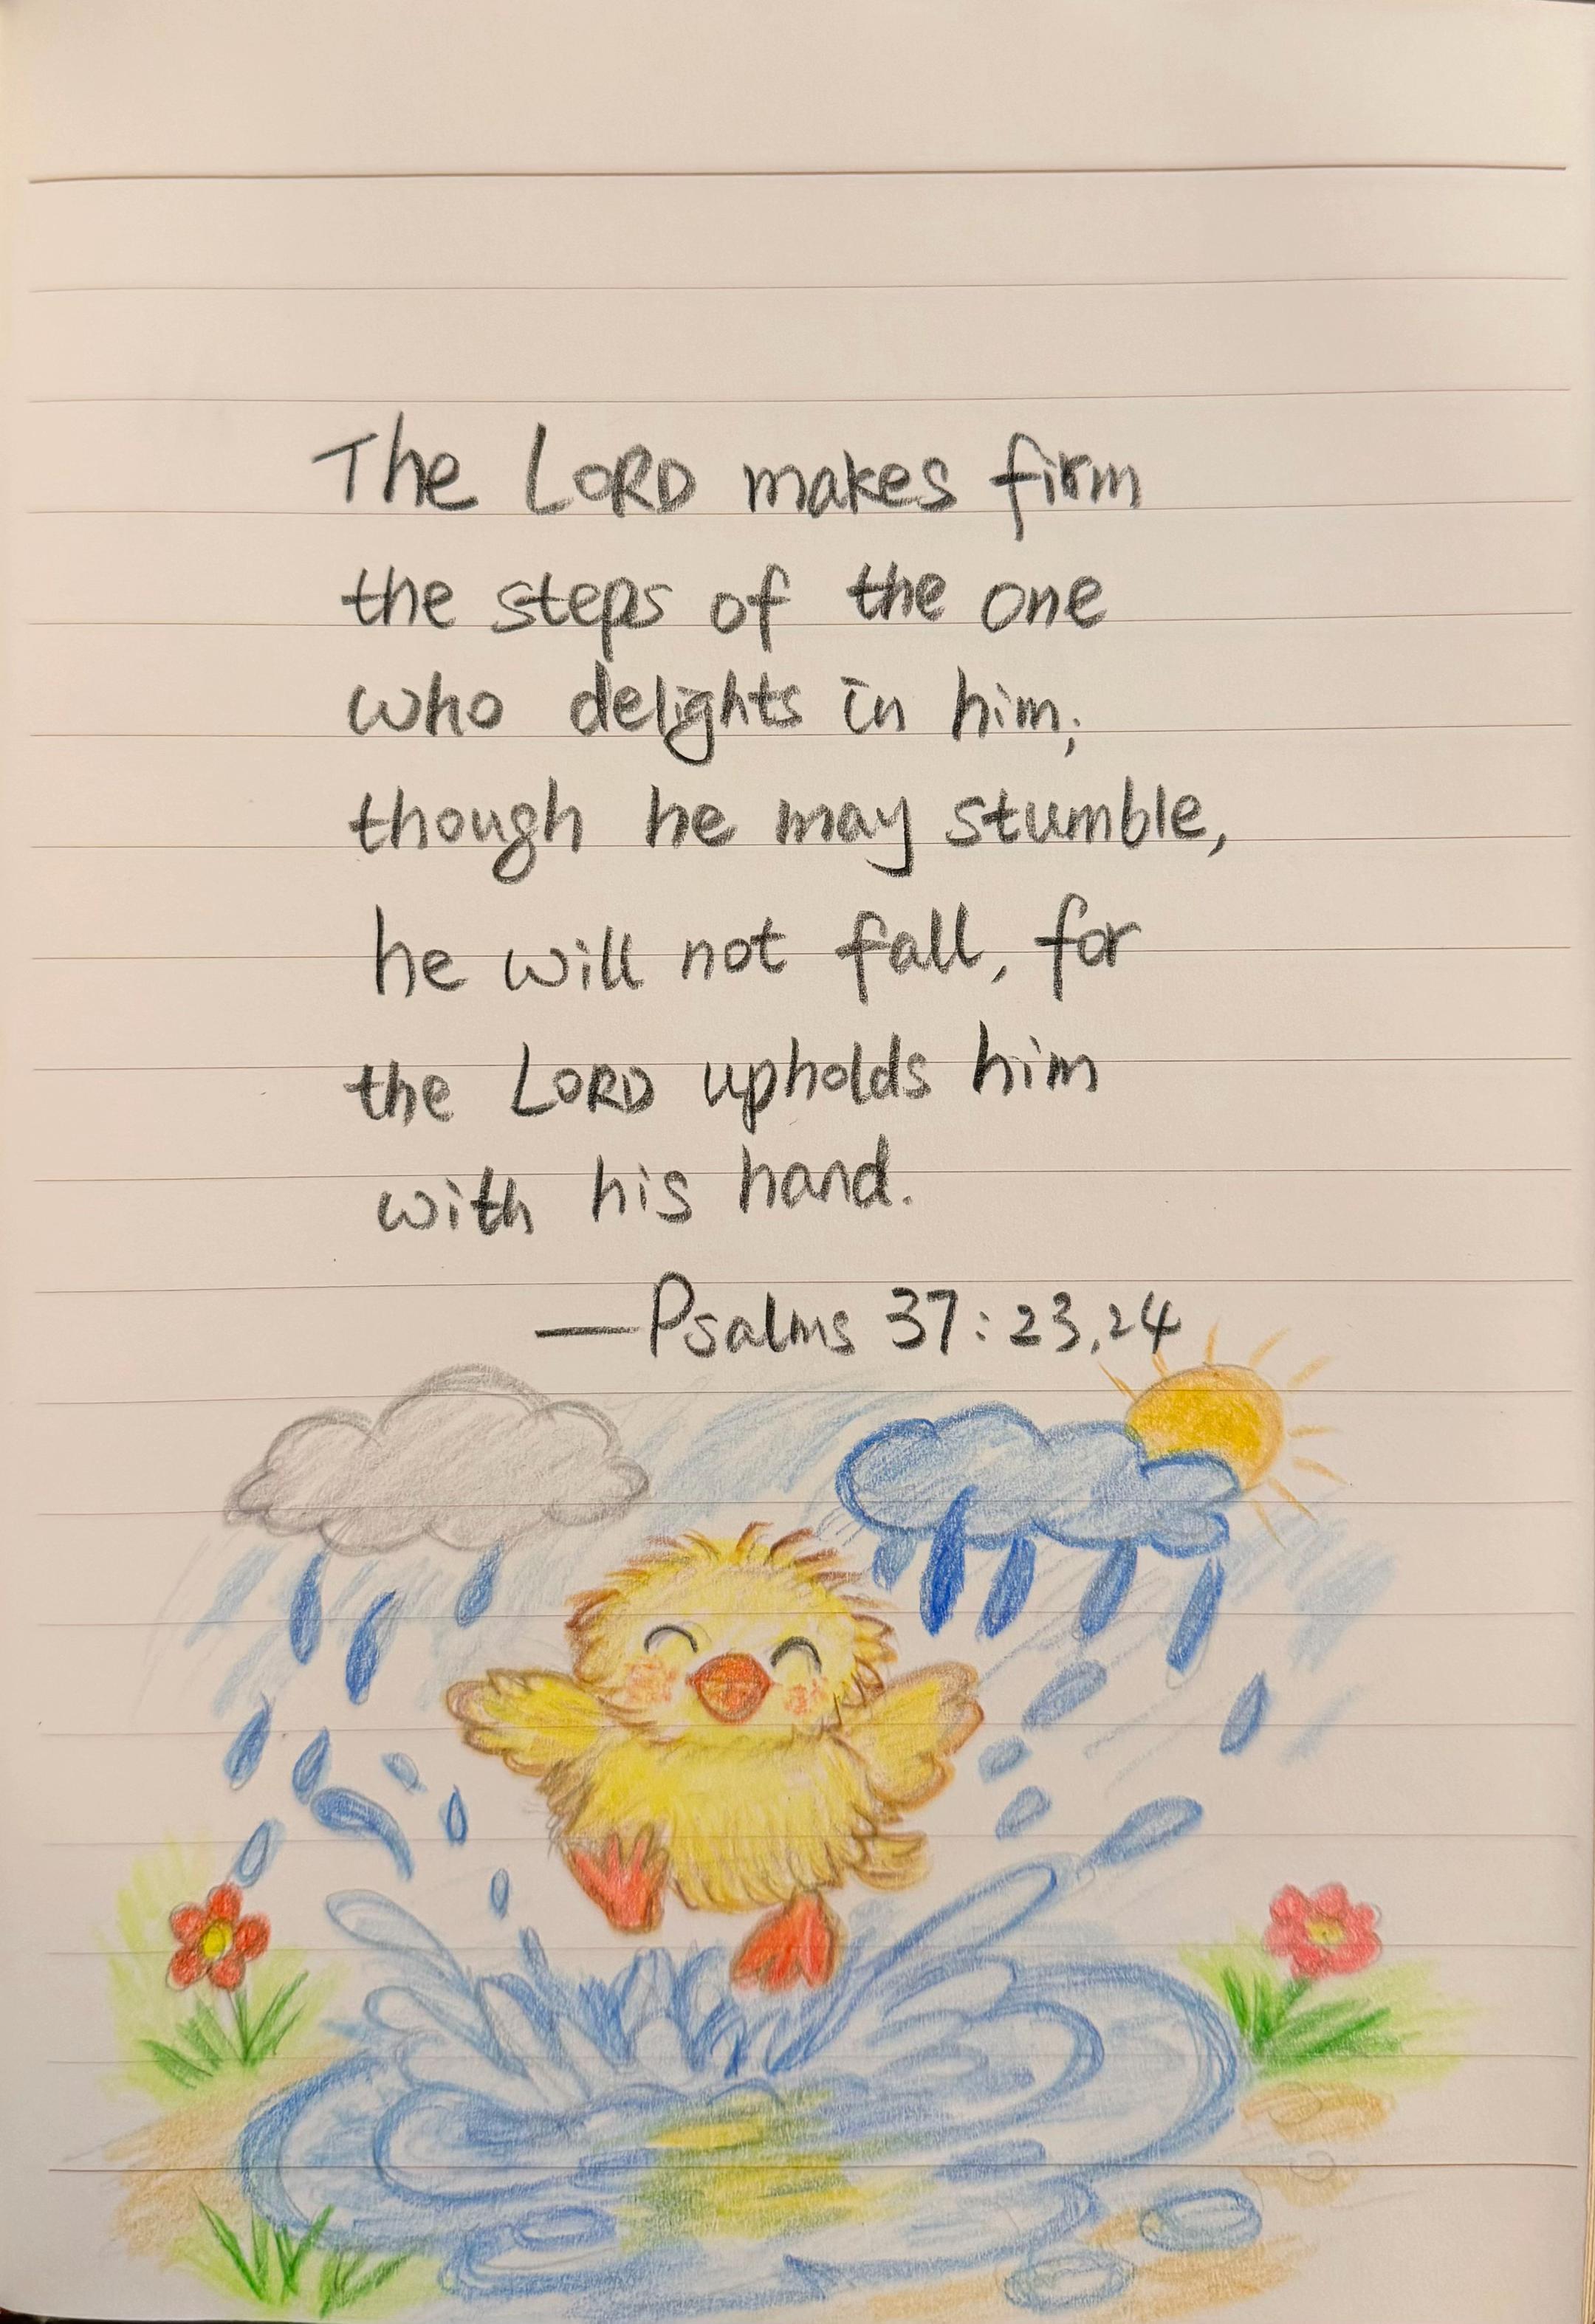 The LORD makes firm
the steps of the one
who delights in him;
though he may stumble,
he will not fall, for
the LORD upholds him
with his hand.
—Psalms 37:23,24